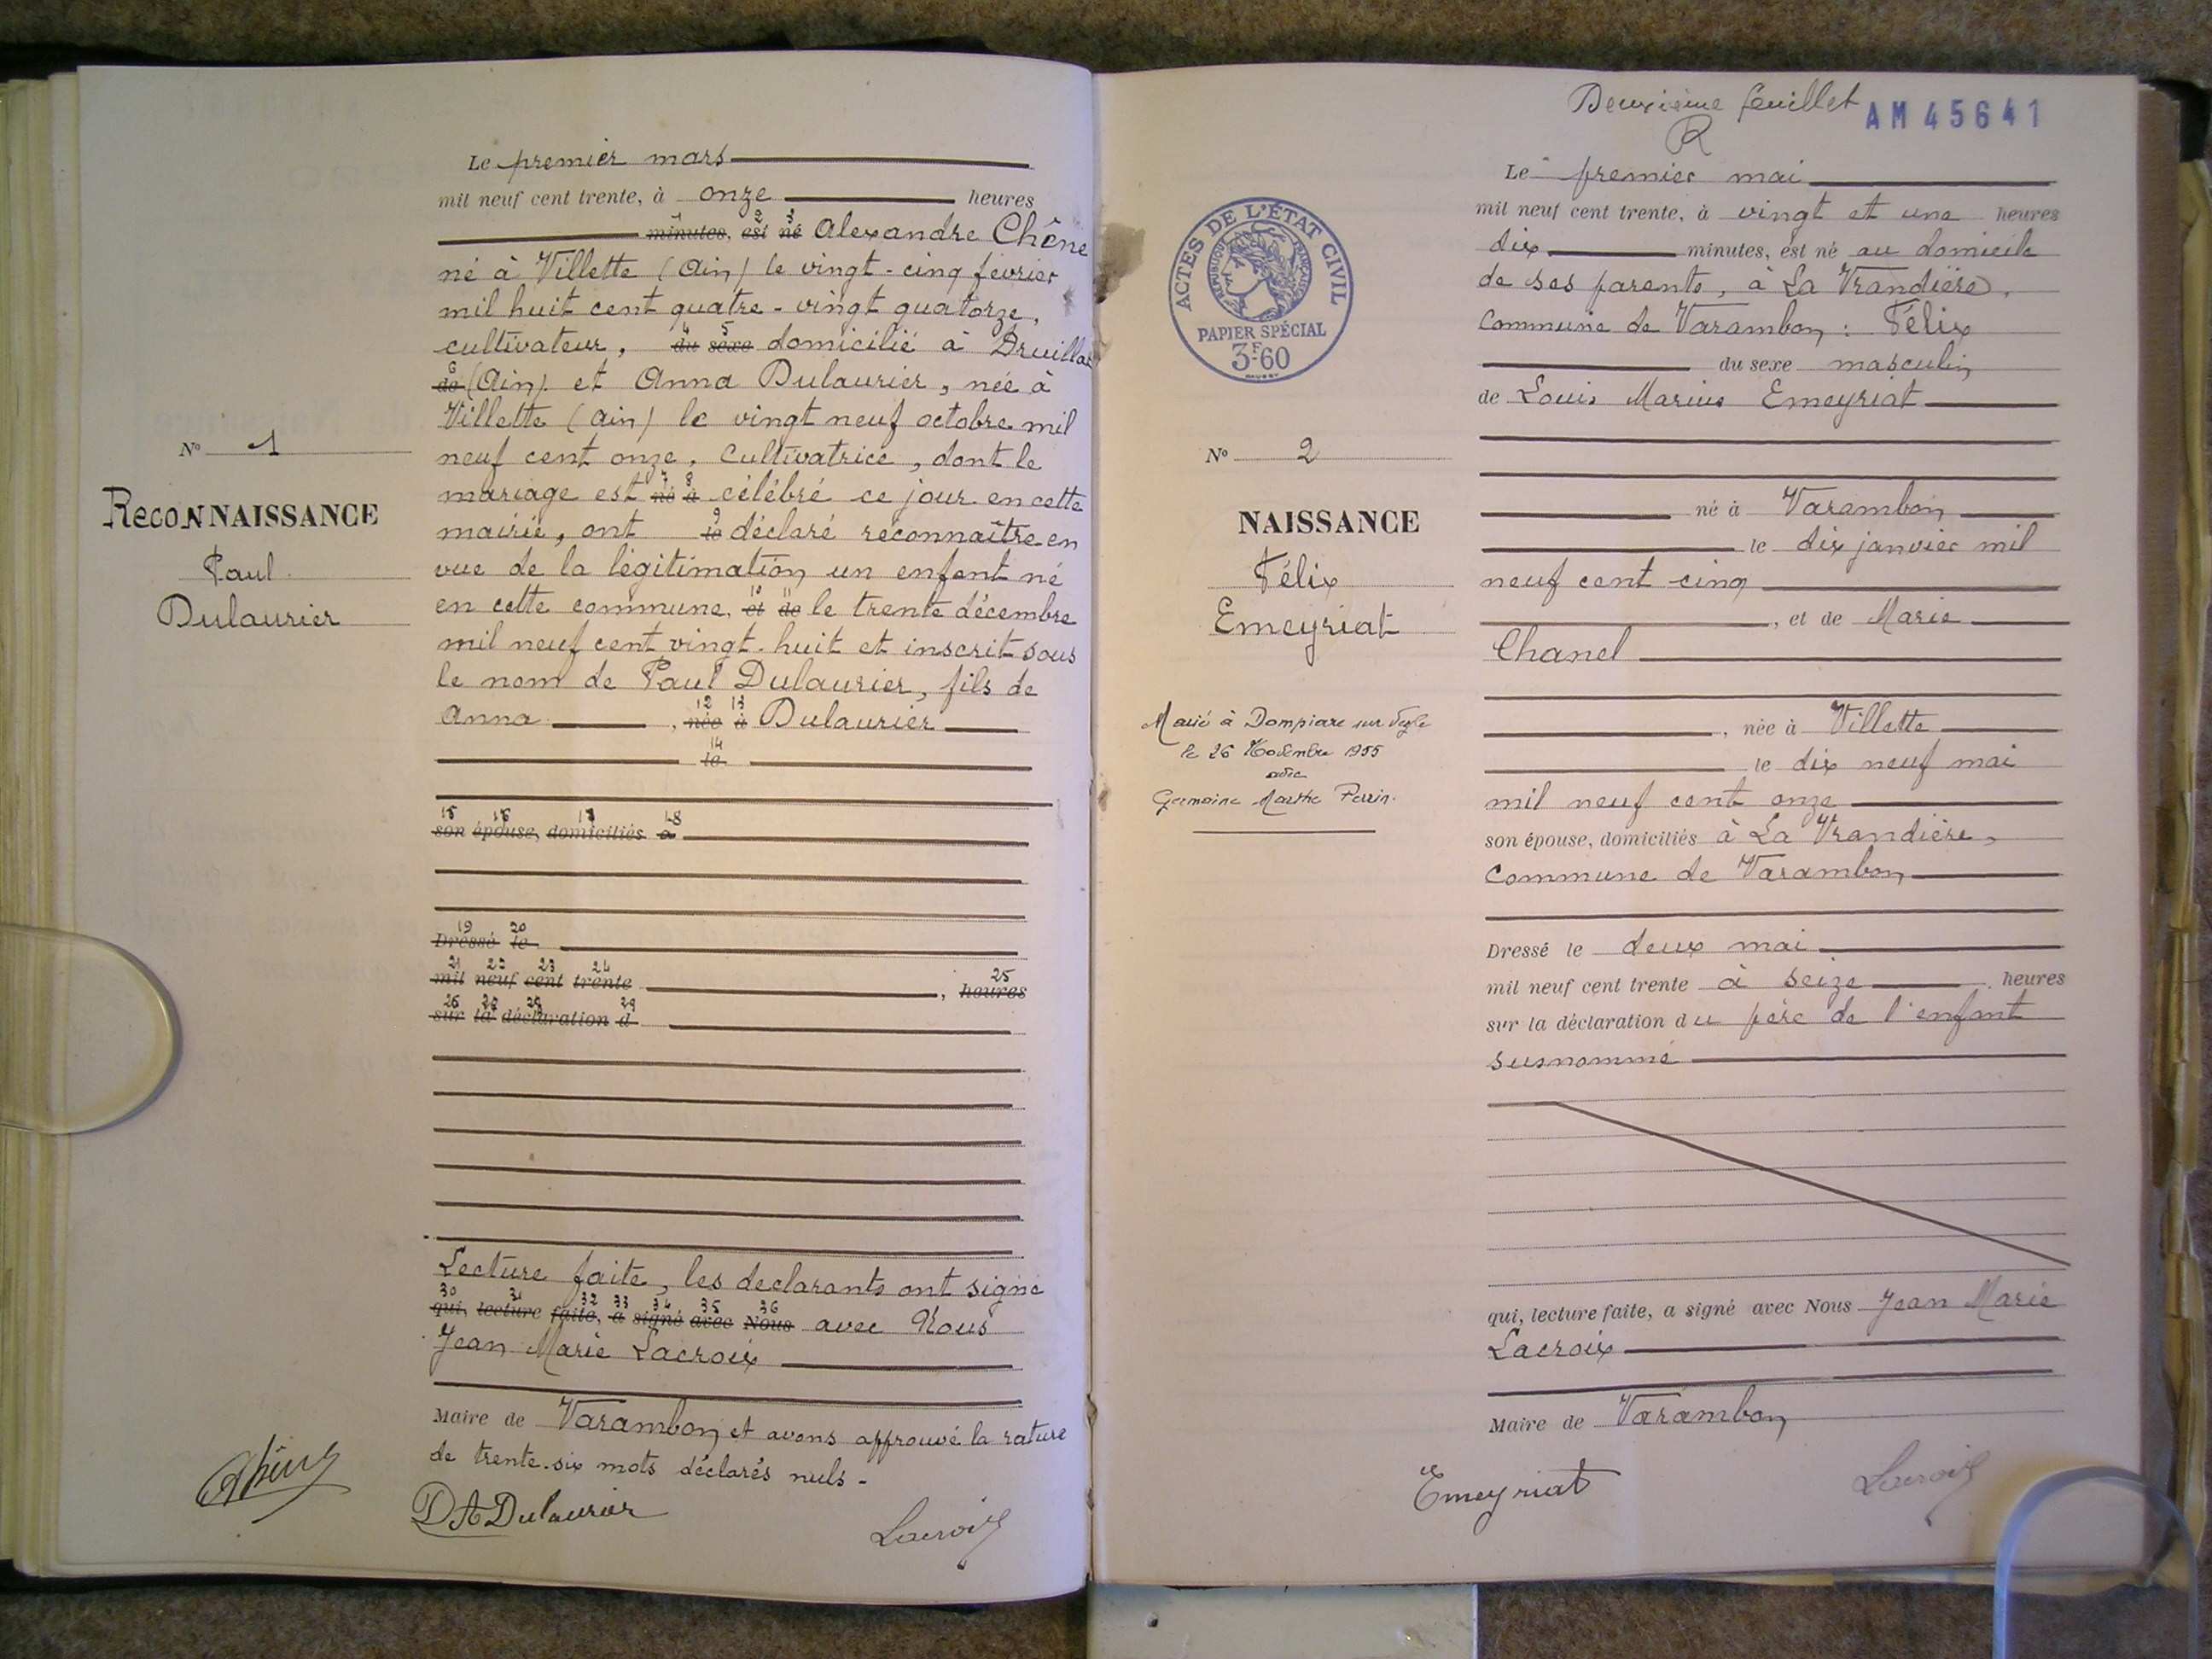 Le premier mars
mil neuf cent trente, à onze heures
minutes, est né Alexandre Chêne
né à Villette (Ain) le vingt-cinq février
mil huit cent quatre-vingt quatorze,
cultivateur, du sexe domicilié à Druillat
de (Ain). et Anna Dulaurier, née à
Villette (Ain) le vingt neuf octobre mil
neuf cent onze, Cultivatrice, dont le
mariage est né à célébré ce jour en cette
mairie, ont le déclaré reconnaître en
vue de la légitimation un enfant né
en cette commune, et de le trente décembre
mil neuf cent vingt-huit et inscrit sous
le nom de Paul Dulaurier, fils de
Anna, née à Dulaurier
le
son épouse, domiciliés à
Dressé le
mil neuf cent trente, heures
sur la déclaration d
Lecture faite, les déclarants ont signé
qui, lecture faite, a signé avec Nous avec Nous
Jean Marie Lacroix
Maire de Varambon et avons approuvé la rature
de trente-six mots déclarés nuls -
DADulaurier
Lacroix
N° 1
RecoNNAISSANCE
Paul
Dulaurier
Deuxième feuillet
R
AM 45641
ACTES DE L'ÉTAT CIVIL
RÉPUBLIQUE FRANÇAISE
PAPIER SPÉCIAL
3F.60
N° 2
NAISSANCE
Félix
Emeyriat
Marié à Dompierre sur Veyle
le 26 Novembre 1955
avec
Germaine Marthe Perrin.
Le premier mai
mil neuf cent trente, à vingt et une heures
dix minutes, est né au domicile
de ses parents, à La Vrandière,
Commune de Varambon : Félix
du sexe masculin
de Louis Marius Emeyriat
né à Varambon
le dix janvier mil
neuf cent cinq
, et de Marie
Chanel
, née à Villette
le dix neuf mai
mil neuf cent onze
son épouse, domiciliés à La Vrandière,
Commune de Varambon
Dressé le deux mai
mil neuf cent trente à seize heures
sur la déclaration du père de l'enfant
susnommé
qui, lecture faite, a signé avec Nous Jean Marie
Lacroix
Maire de Varambon
Emeyriat
Lacroix